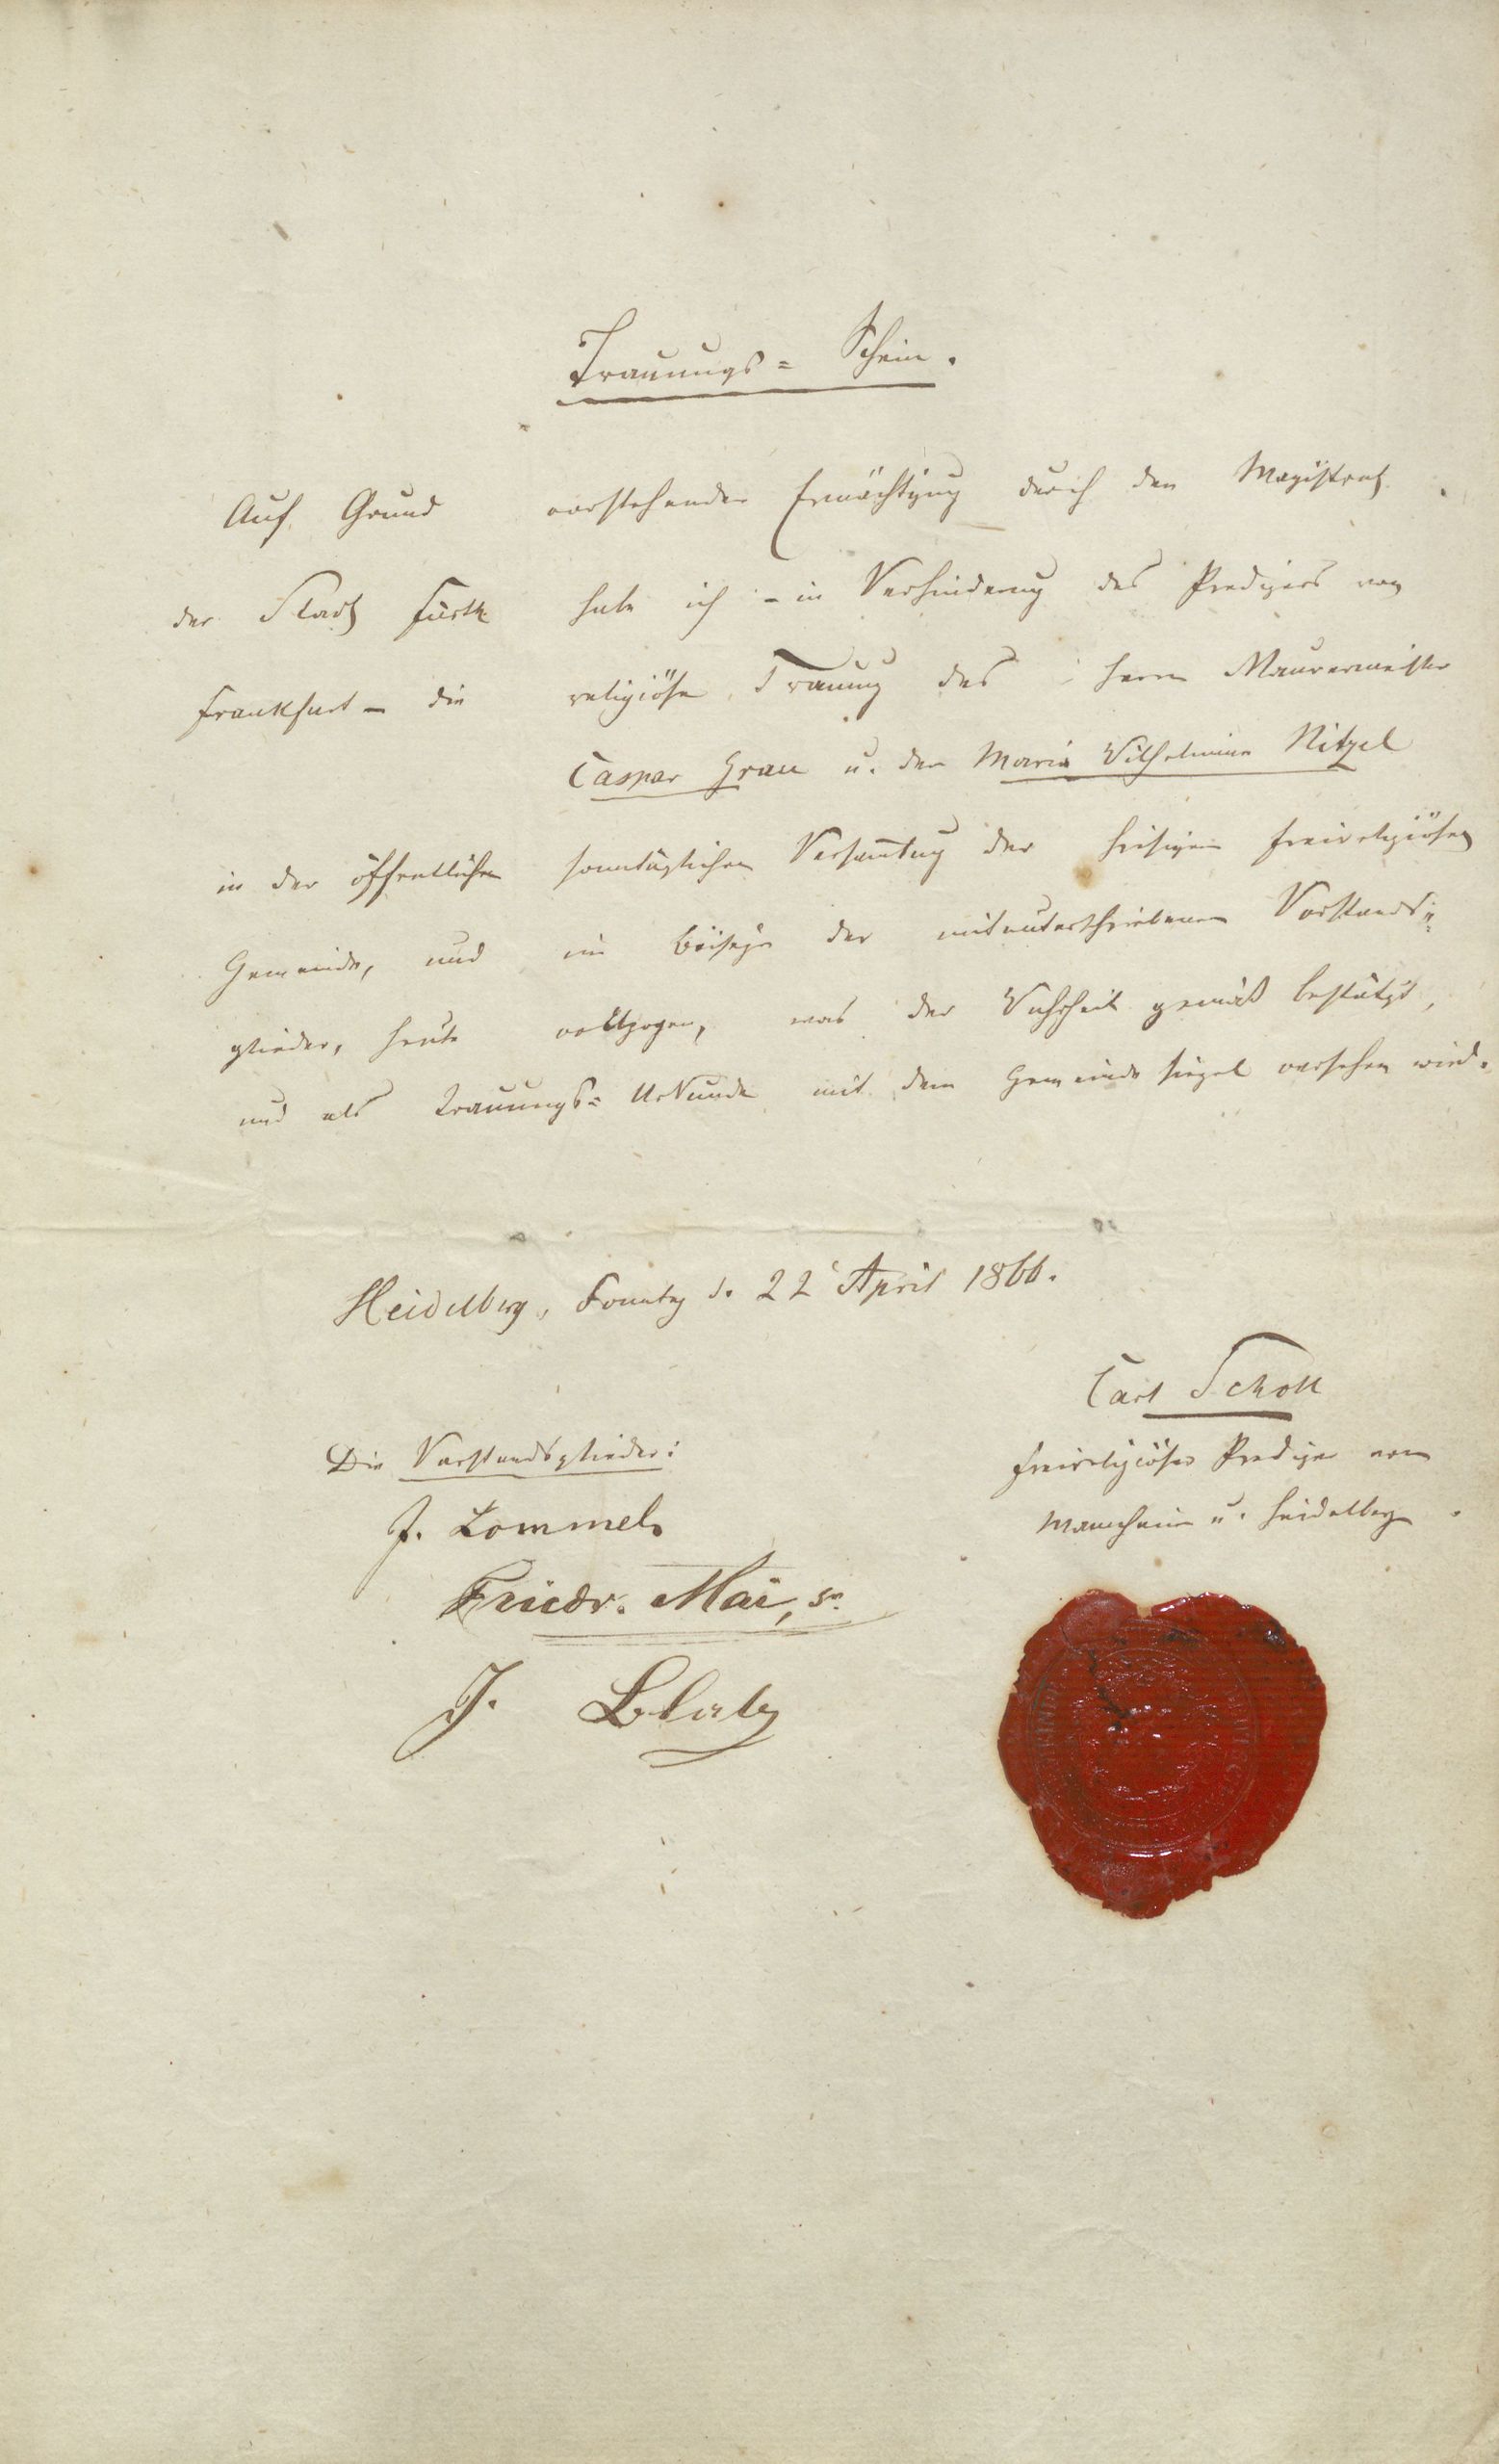 Trauungs= Schein.
Auf Grund vorstehender Ermächtigung durch den Magistrat
der Stadt Fürth habe ich - in Verhinderung des Predigers von
Frankfurt - die religiöse Trauung des Herrn Maurermeister
Caspar Grau u. der Maria Wilhelmine Nitzel
in der öffentlichen sonntäglichen Versam̅lung der hiesigen freireligiösen
Gemeinde, und im Beisein der mitunterschriebenen Vorstands=
glieder, heute vollzogen, was der Wahrheit gemäß bestätigt,
und als Trauungs= Urkunde mit dem Gemeindesiegel versehen wird.
Heidelberg, Sonntag d. 22 April 1866.
Carl Scholl
freireligiöser Prediger von
Mannheim u. Heidelberg.
Die Vorstandsglieder:
J. Lommel
Friedr. Mai, sr.
J. Blatz